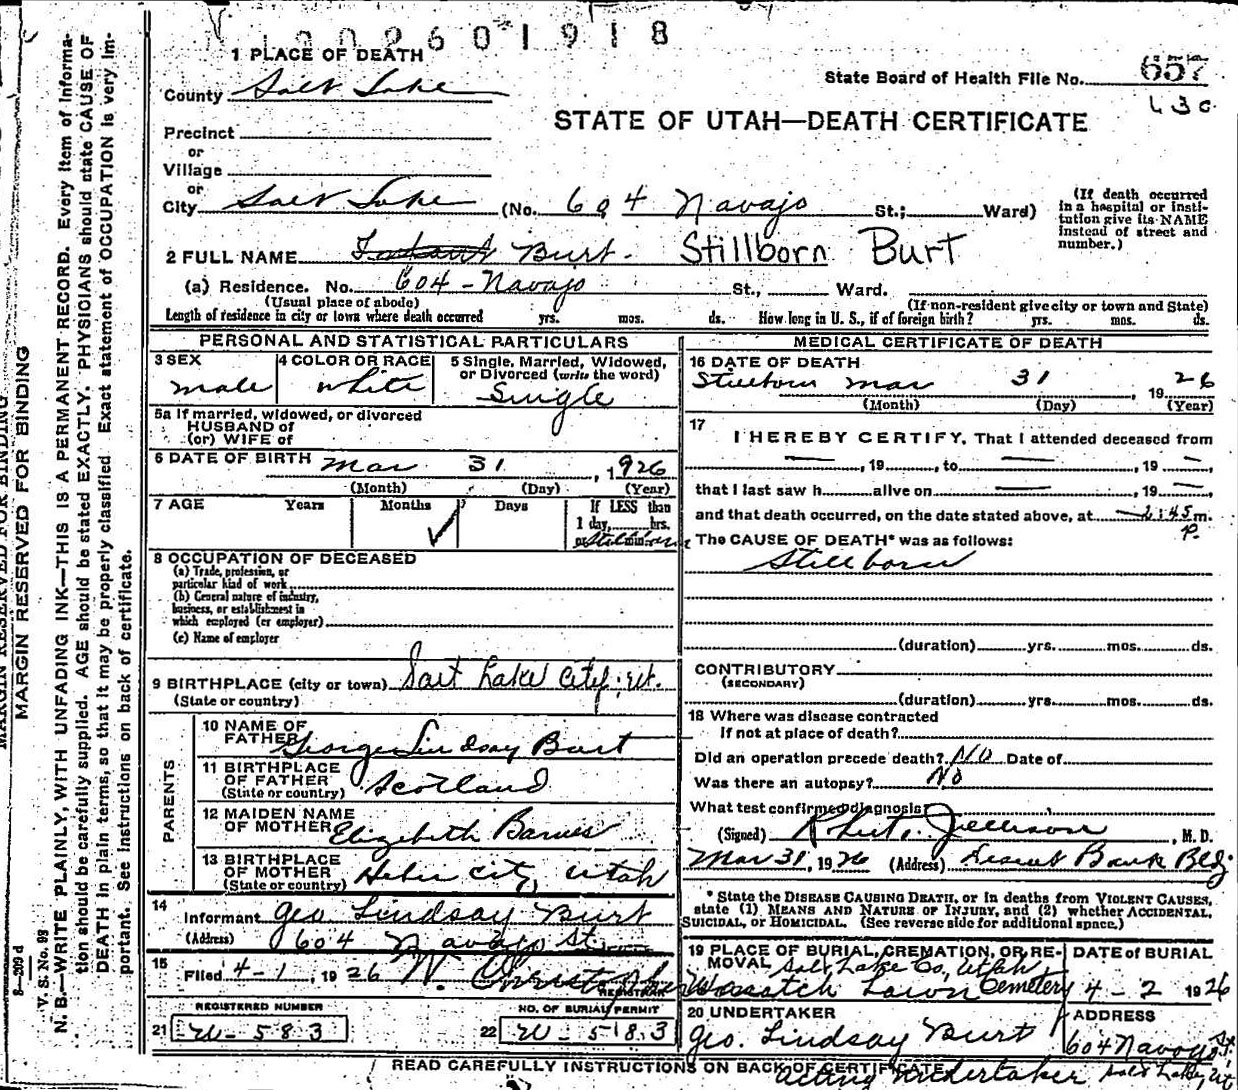 1002601918
1 PLACE OF DEATH
State Board of Health File No. 657
130
County Salt Lake
STATE OF UTAH—DEATH CERTIFICATE
Precinct
or
Village
or
City Salt Lake (No. 604 Navajo St.; Ward)
(If death occurred in a hospital or institution give its NAME instead of street and number.)
2 FULL NAME Infant Burt. Stillborn Burt
(a) Residence. No. 604 - Navajo St., Ward.
(Usual place of abode) (If non-resident give city or town and State)
Length of residence in city or town where death occurred yrs. mos. ds. How long in U. S., if of foreign birth? yrs. mos. ds.
PERSONAL AND STATISTICAL PARTICULARS
3 SEX male
4 COLOR OR RACE white
5 Single, Married, Widowed, or Divorced (write the word) Single
5a If married, widowed, or divorced
HUSBAND of
(or) WIFE of
6 DATE OF BIRTH Mar 31, 1926
(Month) (Day) (Year)
7 AGE Years Months Days If LESS than
1 day, hrs.
or Stillborn min.
8 OCCUPATION OF DECEASED
(a) Trade, profession, or
particular kind of work
(b) General nature of industry,
business, or establishment in
which employed (or employer)
(c) Name of employer
9 BIRTHPLACE (city or town) Salt Lake City, Ut.
(State or country)
PARENTS
10 NAME OF FATHER George Lindsay Burt
11 BIRTHPLACE OF FATHER (State or country) Scotland
12 MAIDEN NAME OF MOTHER Elizabeth Barnes
13 BIRTHPLACE OF MOTHER (State or country) Heber City, Utah
14 Informant Geo Lindsay Burt
(Address) 604 Navajo St.
15 Filed 4-1, 1926 W. Christopherson
REGISTRAR
REGISTERED NUMBER
21 W-583
NO. OF BURIAL PERMIT
22 W-583
MEDICAL CERTIFICATE OF DEATH
16 DATE OF DEATH
Stillborn Mar 31, 1926
(Month) (Day) (Year)
17
I HEREBY CERTIFY, That I attended deceased from
—, 19 , to —, 19 —,
that I last saw h alive on —, 19 —,
and that death occurred, on the date stated above, at 2:45 m.
P.
The CAUSE OF DEATH* was as follows:
Stillborn
(duration) yrs. mos. ds.
CONTRIBUTORY
(SECONDARY)
(duration) yrs. mos. ds.
18 Where was disease contracted
If not at place of death?
Did an operation precede death? No Date of
Was there an autopsy? No
What test confirmed diagnosis?
(Signed) Jellison, M. D.
Mar 31, 1926 (Address) Deseret Bank Bldg
* State the DISEASE CAUSING DEATH, or in deaths from VIOLENT CAUSES,
state (1), MEANS AND NATURE OF INJURY, and (2) whether ACCIDENTAL,
SUICIDAL, or HOMICIDAL. (See reverse side for additional space.)
19 PLACE OF BURIAL, CREMATION, OR REMOVAL Salt Lake Co, Utah
Wasatch Lawn Cemetery
DATE OF BURIAL
4-2 1926
20 UNDERTAKER
Geo. Lindsay Burt
Acting Undertaker
ADDRESS
604 Navajo St.
Salt Lake, Ut
READ CAREFULLY INSTRUCTIONS ON BACK OF CERTIFICATE
MARGIN RESERVED FOR BINDING
MARGIN RESERVED FOR BINDING
8—209 d
V. S. No. 93
N. B.—WRITE PLAINLY, WITH UNFADING INK—THIS IS A PERMANENT RECORD. Every item of Informa-
tion should be carefully supplied. AGE should be stated EXACTLY. PHYSICIANS should state CAUSE OF
DEATH in plain terms, so that it may be properly classified. Exact statement of OCCUPATION is very im-
portant. See instructions on back of certificate.